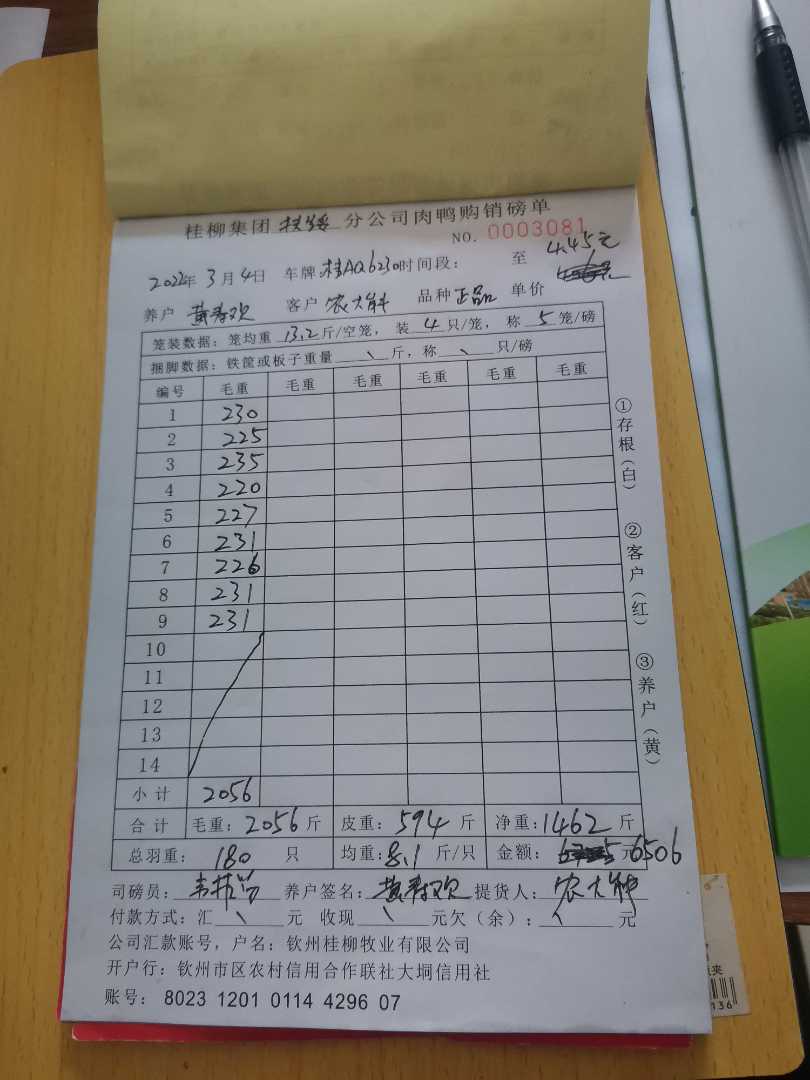 桂柳集团 扶绥 分公司肉鸭购销磅单
NO. 0003081
2022年 3月 4日 车牌:桂AQ6230 时间段: 至 4.45元
养户 黄寿欢 客户 农大能 品种 正品 单价
笼装数据:笼均重 13.2 斤/空笼, 装 4 只/笼, 称 5 笼/磅
捆脚数据:铁筐或板子重量 \ 斤,称 \ 只/磅
编号 毛重 毛重 毛重 毛重 毛重 毛重
1 230
2 225
3 235
4 220
5 227
6 231
7 226
8 231
9 231
10
11
12
13
14
小计 2056
合计 毛重: 2056 斤 皮重: 594 斤 净重: 1462 斤
总羽重: 180 只 均重: 8.1 斤/只 金额: 元 6506
司磅员: 养户签名: 黄寿欢 提货人: 农大能
付款方式:汇 \ 元 收现 \ 元欠(余): \ 元
公司汇款账号,户名:钦州桂柳牧业有限公司
开户行:钦州市区农村信用合作联社大垌信用社
账号: 8023 1201 0114 4296 07
①存根(白)
②客户(红)
③养户(黄)
夹
136